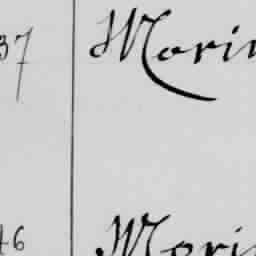 37 Morin
46 Morin